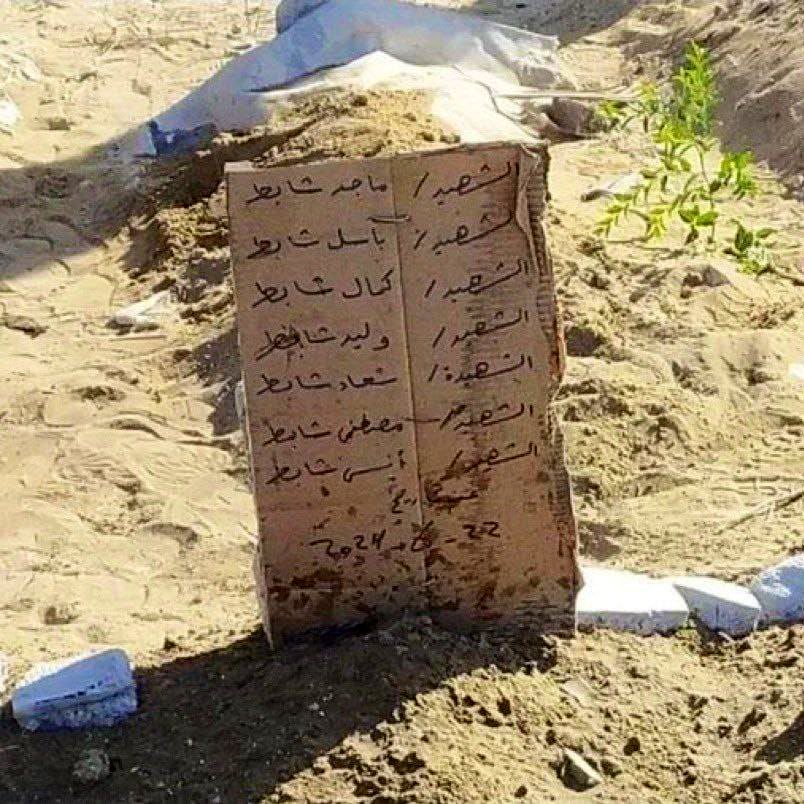 الشهيد / ماجد شابط
الشهيد / باسل شابط
الشهيد / كمال شابط
الشهيد / وليد شابط
الشهيدة / سعاد شابط
الشهيد / مصطفى شابط
الشهيد / أنس شابط
تاريخ
22-6-2024